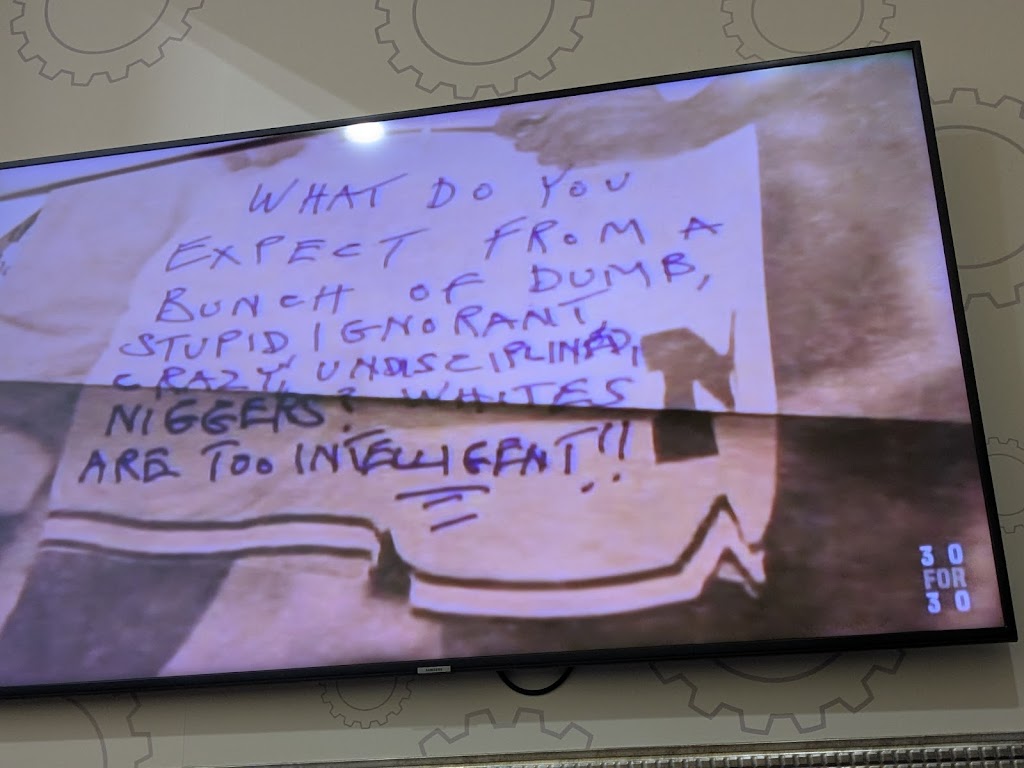 WHAT DO YOU
EXPECT FROM A
BUNCH OF DUMB,
STUPID IGNORANT,
CRAZY, UNDISCIPLINED,
NIGGERS? WHITES
ARE TOO INTELLIGENT!!
30
FOR
30
SAMSUNG